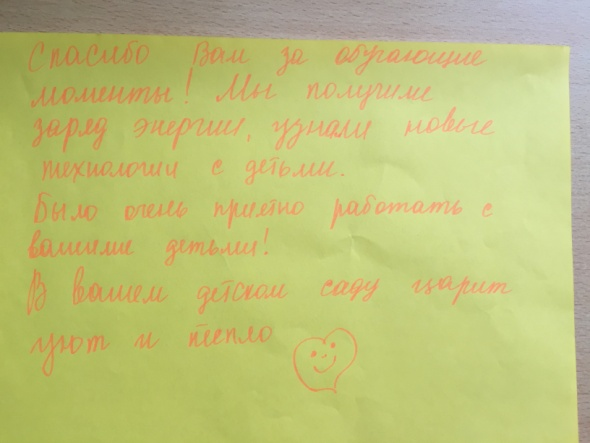 Спасибо Вам за обучающие
моменты! Мы получили
заряд энергии, узнали новые
технологии с детьми.
Было очень приятно работать с
вашими детьми!
В вашем детском саду царит
уют и тепло